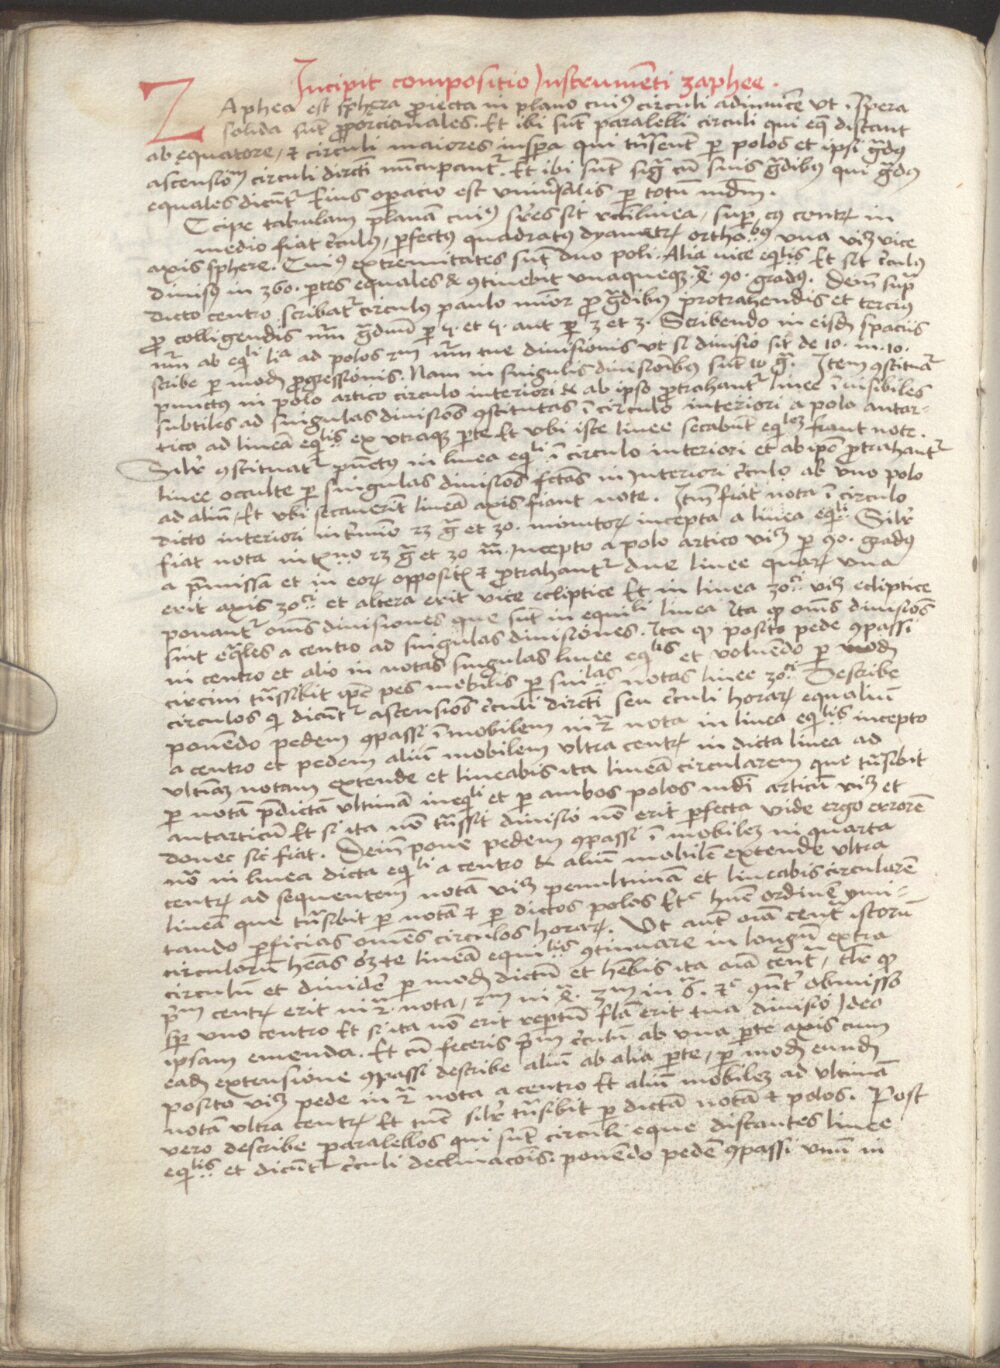 Incipit compositio Instrumēti zaphee .
ZAphea est sphera ꝓiecta in plano cuiꝰ circuli adinuicē vt ī spera
solida sūt ꝓporcionales. Et ibi sūt paralelli circuli qui eq̄ distant
ab equatore, ⁊ circuli maiores in spera qui trāseūt per polos et ipsi gradꝰ
ascensionū circuli directi nūcupantur. Et ibi sunt signa cū suis gradibꝰ qui gradꝰ
equales dicūtur Eiusꝰ operacio est vniuersalis per totū mūdū.
Ccipe tabulam planā cuiꝰ super centrū in
medio fiat circulus, perfectus quadratus dyametris orthogo. una vice
axis sphere. Cuiꝰ extremitates sūt duo poli. Alia vice eq̄lis Et sit circulus
diuisꝰ in 360. partes equales & cōtinebit vnaqueqꝫ 4ᵃ. 90. gradꝰ. Deinde supra
dicto centro scribatur circulus paulo minor pro gradibꝰ protrahendis et tercius
ꝓ colligendis nūm graduū per 5. et 5. aut per 3 et 3. Scribendo in eisdem spaciis
nūm ab eq̄li liᵃ ad polos tue diuisionis vt si diuisio sit de 10. in. 10.
scribe per modū ꝓgressionis. Nam in singulis diuisionibus sūt 10 gra. Item cōstituatur
punctus in polo artico circulo interiori & ab ipso protrahantur linee īuisibiles
subtiles ad singulas diuisiones cōstitutas ī circulo interiori a polo antar-
tico ad lineā eq̄lis ex vtraqꝫ parte Et vbi iste linee secabūt eq̄lem fiant note.
Similiter cōstituatur pūctus in linea eq̄li ī circulo interiori et ab ipso ꝓtrahantur
linee occulte per singulas diuisiones factas in interiori circulo ab vno polo
ad aliū, Et vbi secauerint lineā axis fiant note. Item fiat nota ī circulo
dicto interiori in termino 23 gra et 30. minutorum incepta a linea eq̄li. Similiter
fiat nota in termino 23 gra et 30 m̄. incepto a polo artico per 90. gradꝰ
a premissa et in eorum oppositis ⁊ protrahantur due linee quarum vna
erit axis zoⁱ. et altera erit vice ecliptice Et in linea zoⁱ. ecliptice
ponantur omēs diuisiones que sūt in equili linea Ita qꝫ omēs diuisiones
sint equales a centro ad singulas diuisiones. Ita qꝫ posito pede cōpassi
in centro et alio in notas singulas linee eq̄lis et voluendo per modū
circini trāsibit ipse pes mobilis per singulas notas linee zoⁱ. Describe
circulos qui dicūtur ascensiones circuli directi seu circuli horarum equaliū
ponendo pedem cōpassi īmobilem in 2ᵃ nota in linea eq̄lis incepto
a centro et pedem aliū mobilem vltra centrū in dicta linea ad
vltimā notam extende et lineabis ita lineā circularem que trāsibit
per notam predictā vltimā in eq̄li et per ambos polos mūdi articū et
antarticū Et si ita nō trāssit diuisio nō erit perfecta vide ergo errorē
donec sic fiat. Deinde pone pedem cōpassi īmobilem in quarta
nota in linea dicta eq̄li a centro & aliū mobilē extende vltra
centrū ad sequentem notam penultimā et lineabis circularē
lineā que trāsibit per notā ⁊ per dictos polos Etc hūc ordinē ymi-
tando perficias omēs circulos horarum. Vt aūt oīa centra istorū
circulorū habeas oportet te lineā equilis cōtinuare in longū extra
circulū et diuidere per modū dictū et habebis ita oīa centra, taliter qꝫ
primū centrū erit in 2ᵃ nota, 2m in 4ᵃ. 3m in 6. etc obmisso
semper vno centro Et si ita nō erit repertū falsa erit tua diuisio Ideo
ipsam emenda. Et cū feceris primū circulū ab vna parte axis cum
eadem extensione cōpassi describe aliū ab alia parte, per modū eundē
posito pede in 2ᵃ nota a centro Et aliū mobilem ad vltimā
notā vltra centrū Et tūc similiter trāsibit per dictā notā ⁊ polos. Post
vero describe paralellos qui sunt circuli eque distantes linee
eq̄lis et dicūtur circuli declinacōis. ponendo pedē cōpassi vnū in